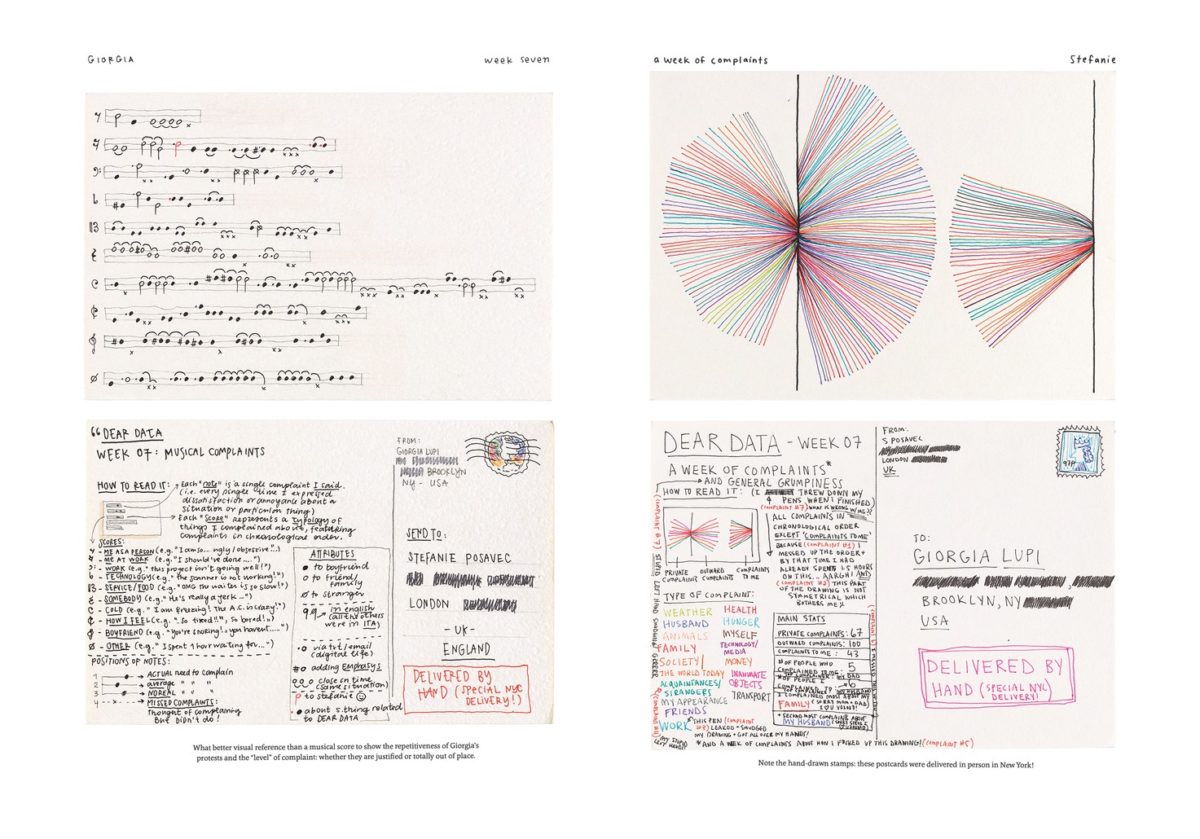 GIORGIA
week seven
a week of complaints
Stefanie
DEAR DATA
WEEK 07: MUSICAL COMPLAINTS
HOW TO READ IT:
Each "NOTE" is a single complaint I said.
(i.e. every single time I expressed
dissatisfaction or annoyance about a
situation or particular thing)
Each "SCORE" represents a typology of
things I complained about, featuring
complaints in chronological order.
SCORES:
- ME AS A PERSON (e.g. "I am so... ugly/obsessive...)
- ME AT WORK (e.g. "I should've done....")
- WORK (e.g. "this project isn't going well!")
- TECHNOLOGY (e.g. "the scanner is not working!")
- SERVICE/FOOD (e.g. "OMG the waiter is so slow!")
- SOMEBODY (e.g. "He's really a jerk—")
- COLD (e.g. "I am freezing! The A.C. is crazy!")
- HOW I FEEL (e.g. "so tired!!", so bored!")
- BOYFRIEND (e.g. "You're snoring!, you haven't....")
- OTHER (e.g. "I spent 1 hour waiting for...")
POSITIONS OF NOTES:
1
2
3
4
ACTUAL need to complain
average " " "
NORMAL " " "
MISSED COMPLAINTS:
Thought of complaining
But didn't do!
ATTRIBUTES
to boyfriend
to friend/
family
to stranger
in english
(all the others
were in ITA)
via txt/email
(digital life)
adding EMPHASYS
close in time
(same situation)
to stefanie
about s.thing related
to DEAR DATA
FROM:
GIORGIA LUPI
BROOKLYN
NY - USA
SEND TO:
STEFANIE POSAVEC
LONDON
- UK -
ENGLAND
DELIVERED BY
HAND (SPECIAL NYC
DELIVERY!)
What better visual reference than a musical score to show the repetitiveness of Giorgia's
protests and the "level" of complaint: whether they are justified or totally out of place.
DEAR DATA - WEEK 07
A WEEK OF COMPLAINTS*
AND GENERAL GRUMPINESS
HOW TO READ IT:
(I THREW DOWN MY
PENS WHEN I FINISHED)
(COMPLAINT #7) WHAT IS WRONG W/ME?!
ALL COMPLAINTS IN
CHRONOLOGICAL ORDER
EXCEPT 'COMPLAINTS TO ME'
BECAUSE (COMPLAINT #1) I
MESSED UP THE ORDER +
BY THAT TIME I HAD
ALREADY SPENT 3.5 HOURS
ON THIS... AARGH! AND
(COMPLAINT #2) THIS PART
OF THE DRAWING IS NOT
SYMETRICAL WHICH
BOTHERS ME!!
PRIVATE COMPLAINTS
OUTWARD COMPLAINTS
COMPLAINTS TO ME
TYPE OF COMPLAINT:
WEATHER
HUSBAND
ANIMALS
FAMILY
SOCIETY/
THE WORLD TODAY
ACQUAINTANCES/
STRANGERS
MY APPEARANCE
FRIENDS
WORK
HEALTH
HUNGER
MYSELF
TECHNOLOGY/
MEDIA
MONEY
INANIMATE
OBJECTS
TRANSPORT
MAIN STATS
PRIVATE COMPLAINTS: 67
OUTWARD COMPLAINTS: 100
COMPLAINTS TO ME: 43
# OF PEOPLE WHO
5
FAMILY
MY HUSBAND
*THIS PEN (COMPLAINT
LEAKED + SMUDGED
MY DRAWING + GOT ALL OVER MY HANDS!
*AND A WEEK OF COMPLAINTS ABOUT HOW I FUCKED UP THIS DRAWING! (COMPLAINT #5)
FROM:
S POSAVEC
LONDON
UK
97P
TO:
GIORGIA LUPI
BROOKLYN, NY
USA
DELIVERED BY
HAND (SPECIAL NYC
DELIVERY!
Note the hand-drawn stamps: these postcards were delivered in person in New York!